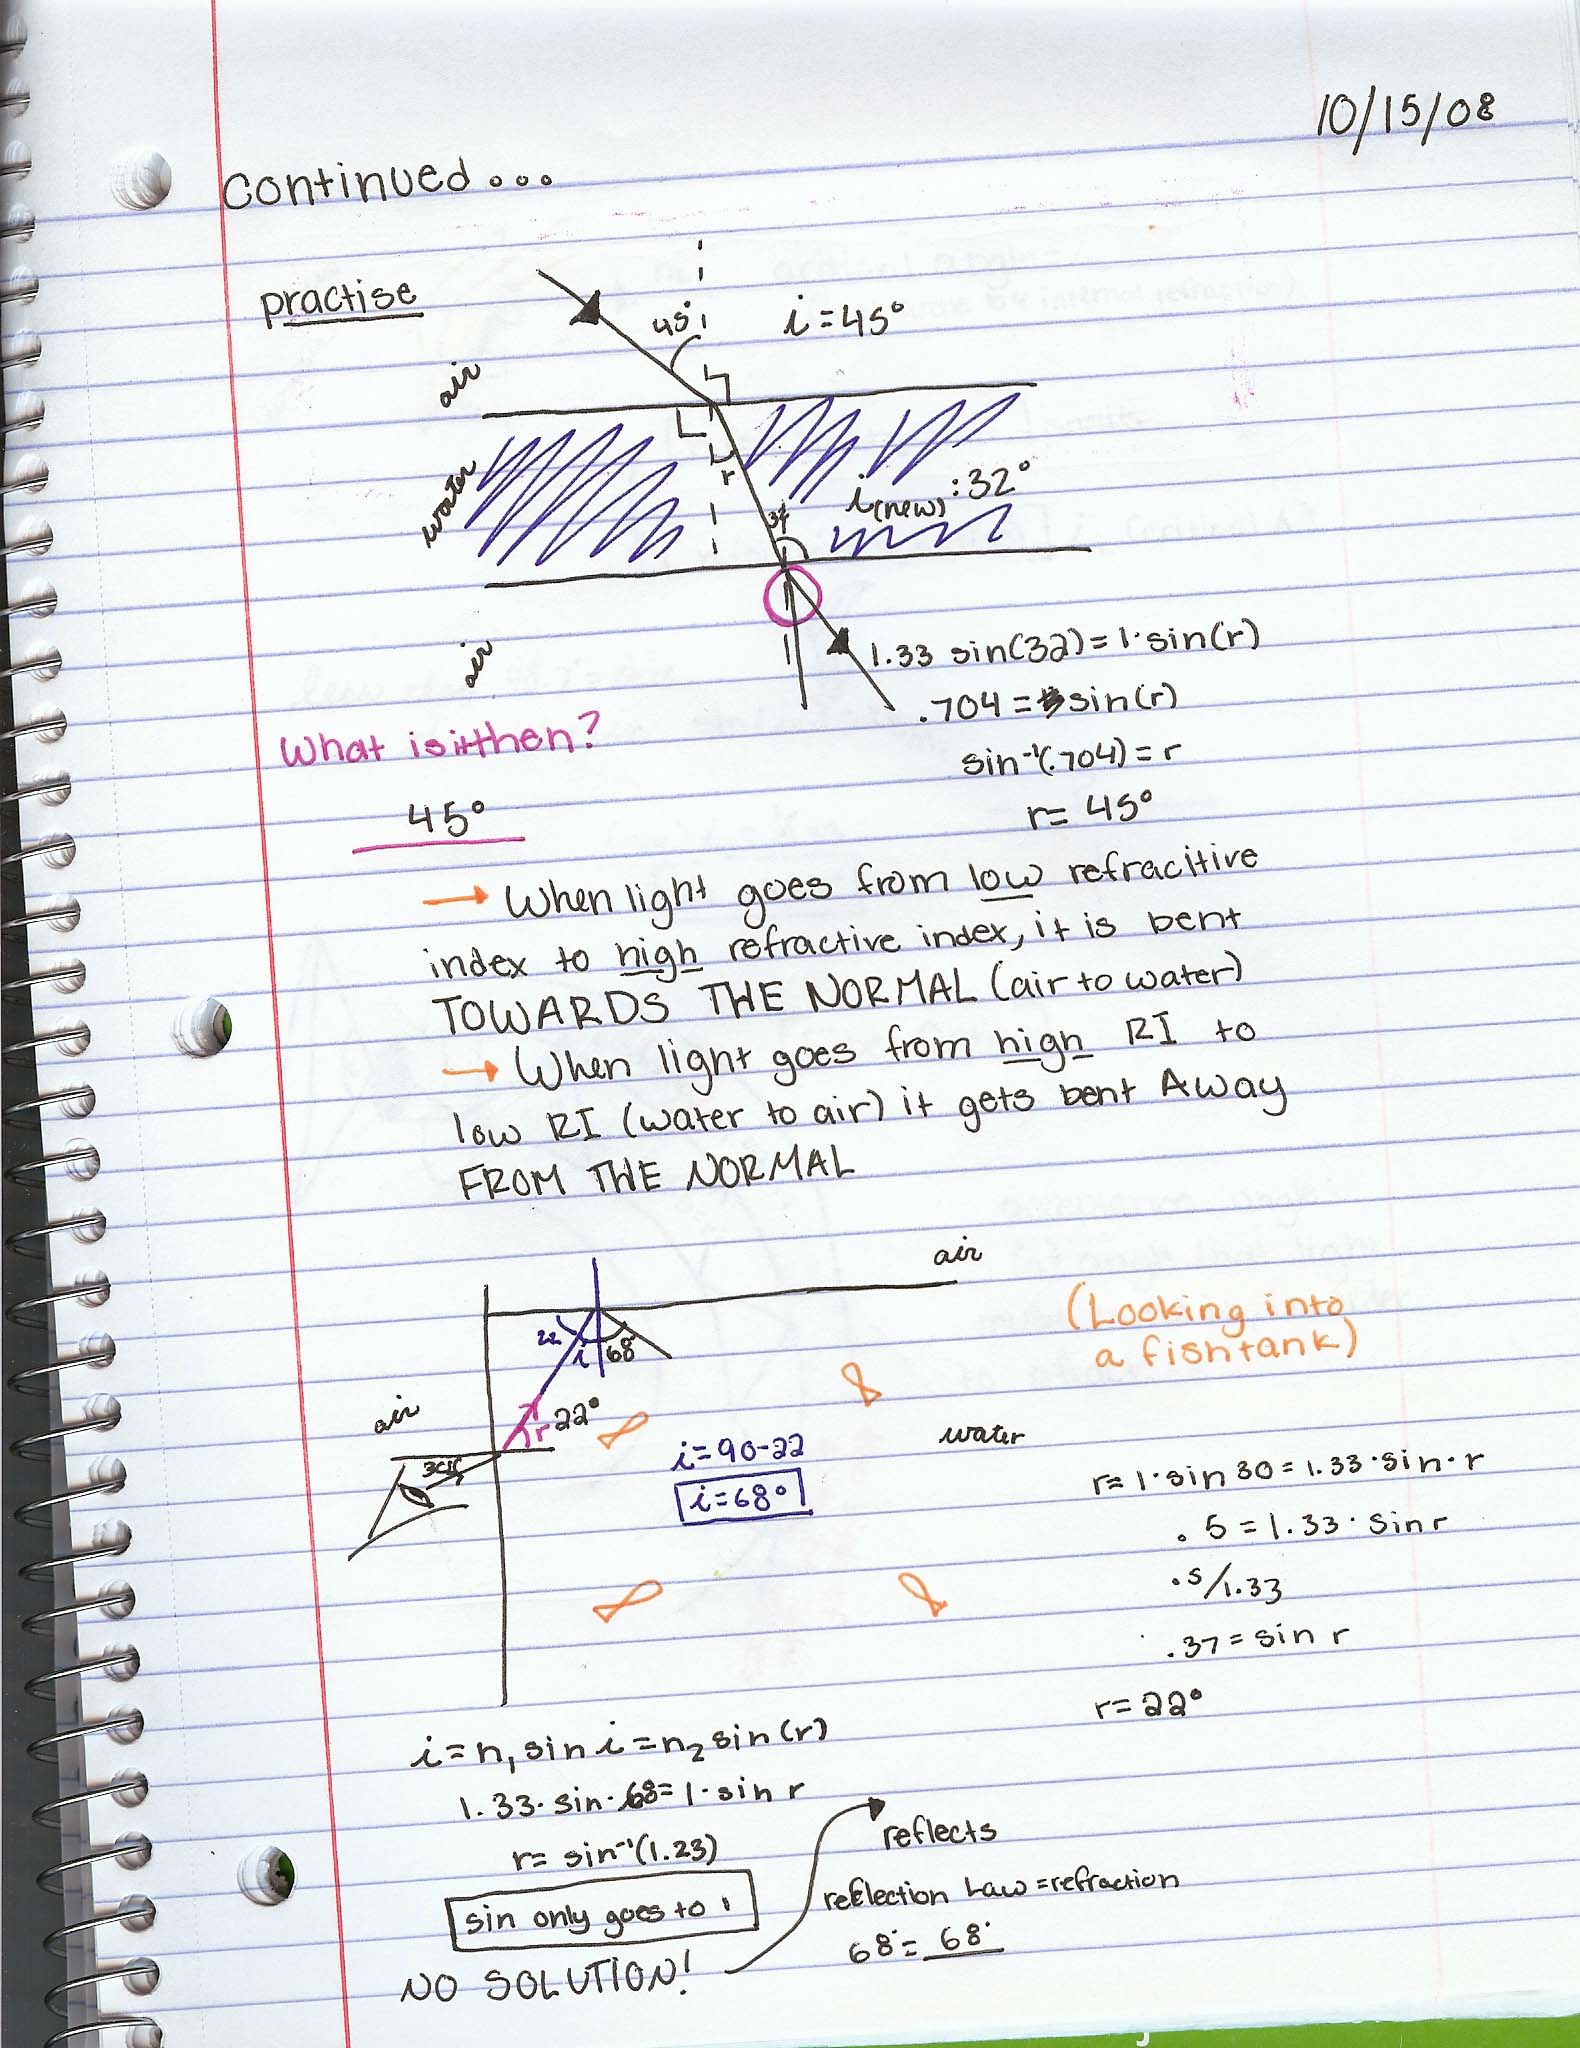 10/15/08
continued...
practise
45°
i=45°
air
water
r
i(new):32°
air
1.33 sin(32)=1·sin(r)
.704=sin(r)
What is it then?
sin⁻¹(.704)=r
45°
r=45°
→ When light goes from low refracitive
index to high refractive index, it is bent
TOWARDS THE NORMAL (air to water)
→ When light goes from high RI to
low RI (water to air) it gets bent AWAY
FROM THE NORMAL
air
(Looking into
a fishtank)
22 i 68°
air
r 22°
water
i=90-22
i=68°
r=1·sin 30=1.33·sin·r
.5=1.33·sinr
.5/1.33
.37=sin r
r=22°
i=n₁sin i=n₂sin(r)
1.33·sin·68=1·sin r
r=sin⁻¹(1.23)
reflects
sin only goes to 1
reflection Law=refraction
68°=68°
NO SOLUTION!